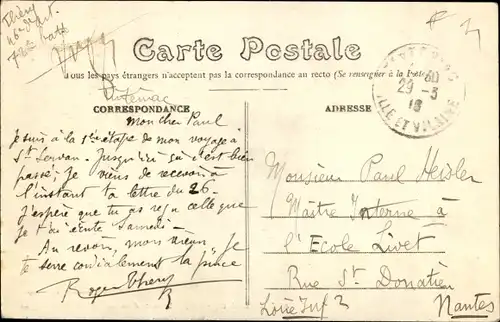 Carte Postale
Tous les pays étrangers n'acceptent pas la correspondance au recto (Se renseigner à la Poste)
CORRESPONDANCE
ADRESSE
29 - 3
16
ILLE ET VILAINE
Mon cher Paul
Je suis à la 1ère étape de mon voyage à
St Servan. Jusqu'ici ça s'est bien
passé. Je viens de recevoir à
l'instant ta lettre du 26.
J'espère que tu as reçu celle que
je t'ai écrite Samedi.
Au revoir, mon vieux, je
te serre cordialement la pince
Roger Théry
Monsieur Paul Heisler
Maître Interne à
l'Ecole Livet
Rue St Donatien
Loire Infre
Nantes